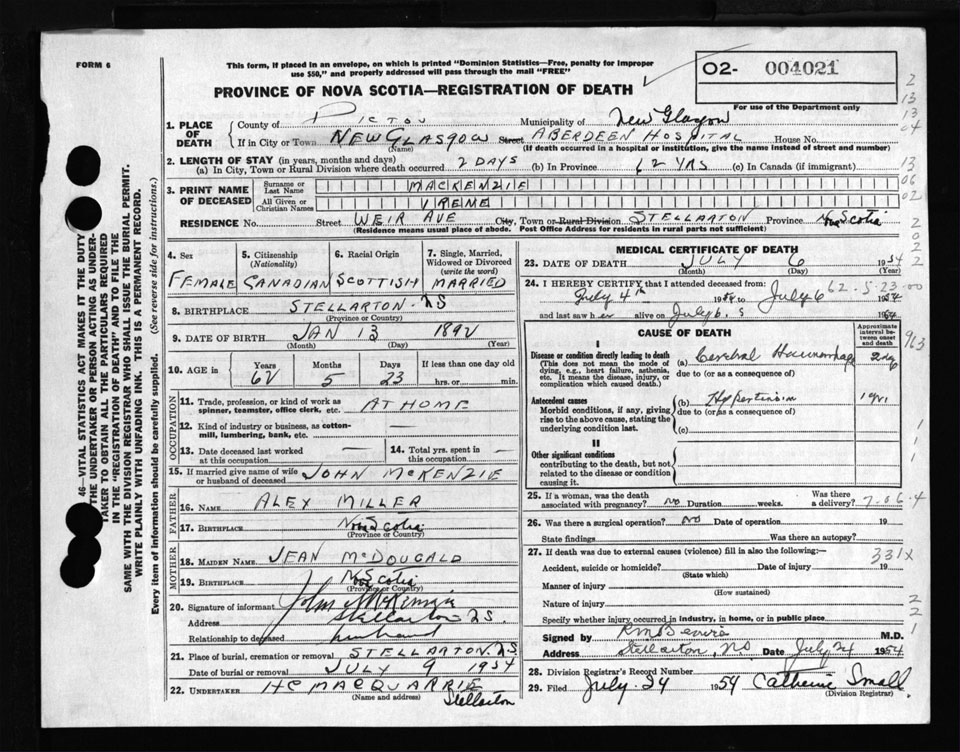 FORM 6
This form, if placed in an envelope, on which is printed "Dominion Statistics—Free, penalty for improper
use $50," and properly addressed will pass through the mail "FREE"
O2- 004021
PROVINCE OF NOVA SCOTIA—REGISTRATION OF DEATH
For use of the Department only
1. PLACE OF DEATH
County of Pictou Municipality of New Glasgow
If in City or Town NEW GLASGOW Street ABERDEEN HOSPITAL House No.
(Name) (If death occurred in a hospital or institution, give the name instead of street and number)
2. LENGTH OF STAY (in years, months and days)
(a) In City, Town or Rural Division where death occurred 2 DAYS (b) In Province 62 YRS (c) In Canada (if immigrant)
3. PRINT NAME OF DECEASED
Surname or Last Name MACKENZIE
All Given or Christian Names IREME
RESIDENCE No. Street WEIR AVE City, Town or Rural Division STELLARTON Province N. Scotia
(Residence means usual place of abode. Post Office Address for residents in rural parts not sufficient)
4. Sex FEMALE
5. Citizenship (Nationality) CANADIAN
6. Racial Origin SCOTTISH
7. Single, Married, Widowed or Divorced (write the word) MARRIED
8. BIRTHPLACE STELLARTON NS
(Province or Country)
9. DATE OF BIRTH JAN 13 1892
(Month) (Day) (Year)
10. AGE in Years 62 Months 5 Days 23 If less than one day old hrs. or min.
OCCUPATION
11. Trade, profession, or kind of work as
spinner, teamster, office clerk, etc. AT HOME
12. Kind of industry or business, as cotton-
mill, lumbering, bank, etc. —
13. Date deceased last worked
at this occupation —
14. Total yrs. spent in
this occupation —
15. If married give name of wife
or husband of deceased JOHN MCKENZIE
FATHER
16. NAME ALEX MILLER
17. BIRTHPLACE N. Scotia
(Province or Country)
MOTHER
18. MAIDEN NAME JEAN MCDOUGALD
19. BIRTHPLACE N. Scotia
(Province or Country)
20. Signature of informant John McKenzie
Address Stellarton NS.
Relationship to deceased husband
21. Place of burial, cremation or removal STELLARTON. NS
Date of burial or removal JULY 9 1954
22. UNDERTAKER HC MACQUARRIE
(Name and address) Stellarton
MEDICAL CERTIFICATE OF DEATH
23. DATE OF DEATH JULY 6 1954
(Month) (Day) (Year)
24. I HEREBY CERTIFY that I attended deceased from: 62-5-23-00
July 4th 1954 to July 6 1954
and last saw her alive on July 6
CAUSE OF DEATH
Approximate interval between onset and death
I
Disease or condition directly leading to death
(This does not mean the mode of
dying, e.g., heart failure, asthenia,
etc. It means the disease, injury, or
complication which caused death.)
(a) Cerebral Haemorrhage
due to (or as a consequence of)
Antecedent causes
Morbid conditions, if any, giving
rise to the above cause, stating the
underlying condition last.
(b) Hypertension
due to (or as a consequence of)
(c)
II
Other significant conditions
contributing to the death, but not
related to the disease or condition
causing it.
25. If a woman, was the death
associated with pregnancy? no Duration weeks. Was there
a delivery?
26. Was there a surgical operation? no Date of operation 19
State findings Was there an autopsy?
27. If death was due to external causes (violence) fill in also the following:— 331X
Accident, suicide or homicide? Date of injury 19
(State which)
Manner of injury
(How sustained)
Nature of injury
Specify whether injury occurred in industry, in home, or in public place
Signed by M.D.
Address Stellarton, NS Date July 24 1954
28. Division Registrar's Record Number
29. Filed July 24 1954 Catherine Small
(Division Registrar)
46—VITAL STATISTICS ACT MAKES IT THE DUTY
OF THE UNDERTAKER OR PERSON ACTING AS UNDER-
TAKER TO OBTAIN ALL THE PARTICULARS REQUIRED
IN THE "REGISTRATION OF DEATH" AND TO FILE THE
SAME WITH THE DIVISION REGISTRAR WHO SHALL ISSUE THE BURIAL PERMIT.
WRITE PLAINLY WITH UNFADING INK. THIS IS A PERMANENT RECORD.
Every item of information should be carefully supplied. (See reverse side for instructions.)
2
13
13
04
13
06
02
2
0
2
2
963
1
1
1
7-06-4
2
2
1